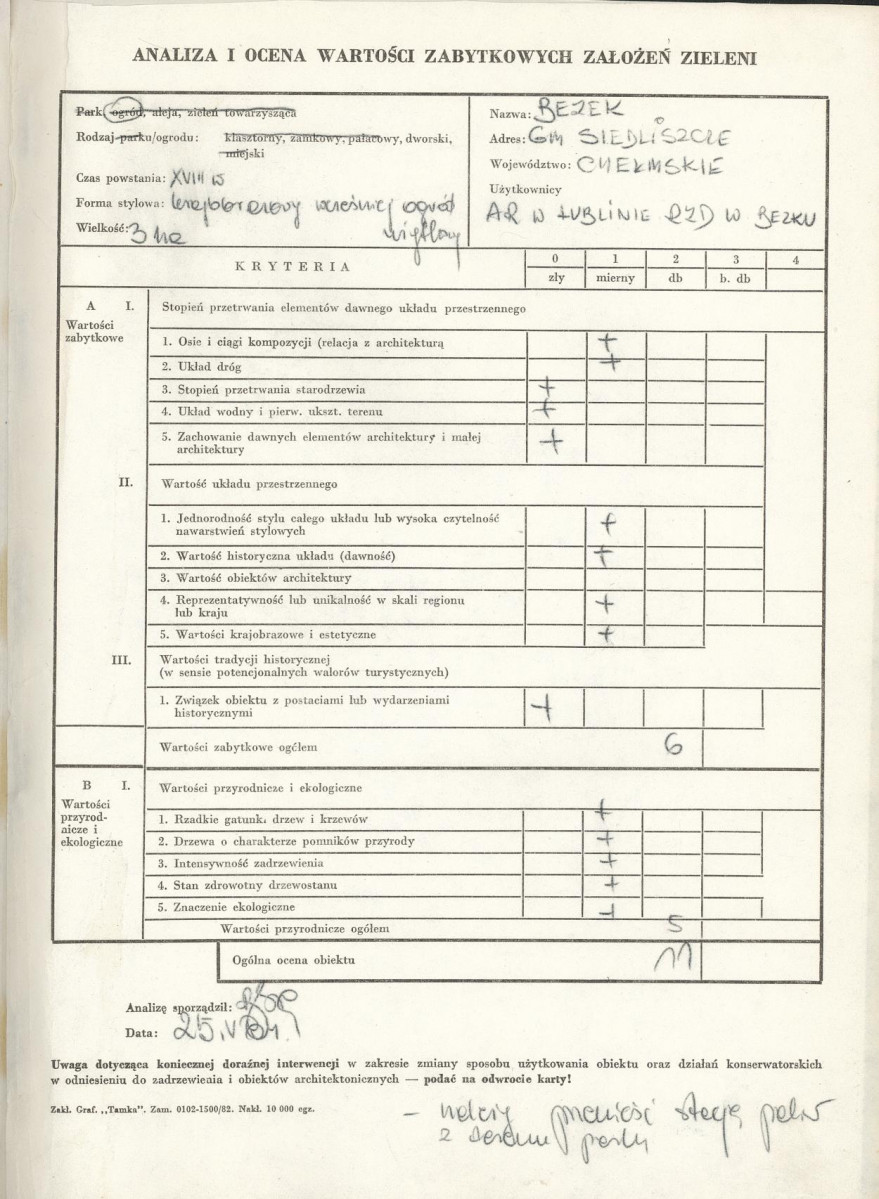 ANALIZA I OCENA WARTOŚCI ZABYTKOWYCH ZAŁOŻEŃ ZIELENI
Park, ogród, aleja, zieleń towarzysząca
Rodzaj parku/ogrodu: klasztorny, zamkowy, pałacowy, dworski,
miejski
Czas powstania: XVIII w
Forma stylowa: krajobrazowy wcześniej ogród
Wielkość: 3 ha
Nazwa: BEZEK
Adres: GM SIEDLISZCZE
Województwo: CHEŁMSKIE
Użytkownicy
AR W LUBLINIE RZD W BEZKU
KRYTERIA 0 1 2 3 4
zły mierny db b. db
A I. Stopień przetrwania elementów dawnego układu przestrzennego
Wartości
zabytkowe
1. Osie i ciągi kompozycji (relacja z architekturą +
2. Układ dróg +
3. Stopień przetrwania starodrzewia +
4. Układ wodny i pierw. ukszt. terenu +
5. Zachowanie dawnych elementów architektury i małej
architektury +
II. Wartość układu przestrzennego
1. Jednorodność stylu całego układu lub wysoka czytelność
nawarstwień stylowych +
2. Wartość historyczna układu (dawność) +
3. Wartość obiektów architektury
4. Reprezentatywność lub unikalność w skali regionu
lub kraju +
5. Wartości krajobrazowe i estetyczne +
III. Wartości tradycji historycznej
(w sensie potencjonalnych walorów turystycznych)
1. Związek obiektu z postaciami lub wydarzeniami
historycznymi +
Wartości zabytkowe ogółem 6
B I. Wartości przyrodnicze i ekologiczne
Wartości
przyrod-
nicze i
ekologiczne
1. Rzadkie gatunki drzew i krzewów +
2. Drzewa o charakterze pomników przyrody +
3. Intensywność zadrzewienia +
4. Stan zdrowotny drzewostanu +
5. Znaczenie ekologiczne +
Wartości przyrodnicze ogółem 5
Ogólna ocena obiektu 11
Analizę sporządził:
Data: 25.V
Uwaga dotycząca koniecznej doraźnej interwencji w zakresie zmiany sposobu użytkowania obiektu oraz działań konserwatorskich
w odniesieniu do zadrzewienia i obiektów architektonicznych — podać na odwrocie karty!
Zakł. Graf. „Tamka". Zam. 0102-1500/82. Nakł. 10 000 egz.
– należy przenieść stację paliw
z terenu parku